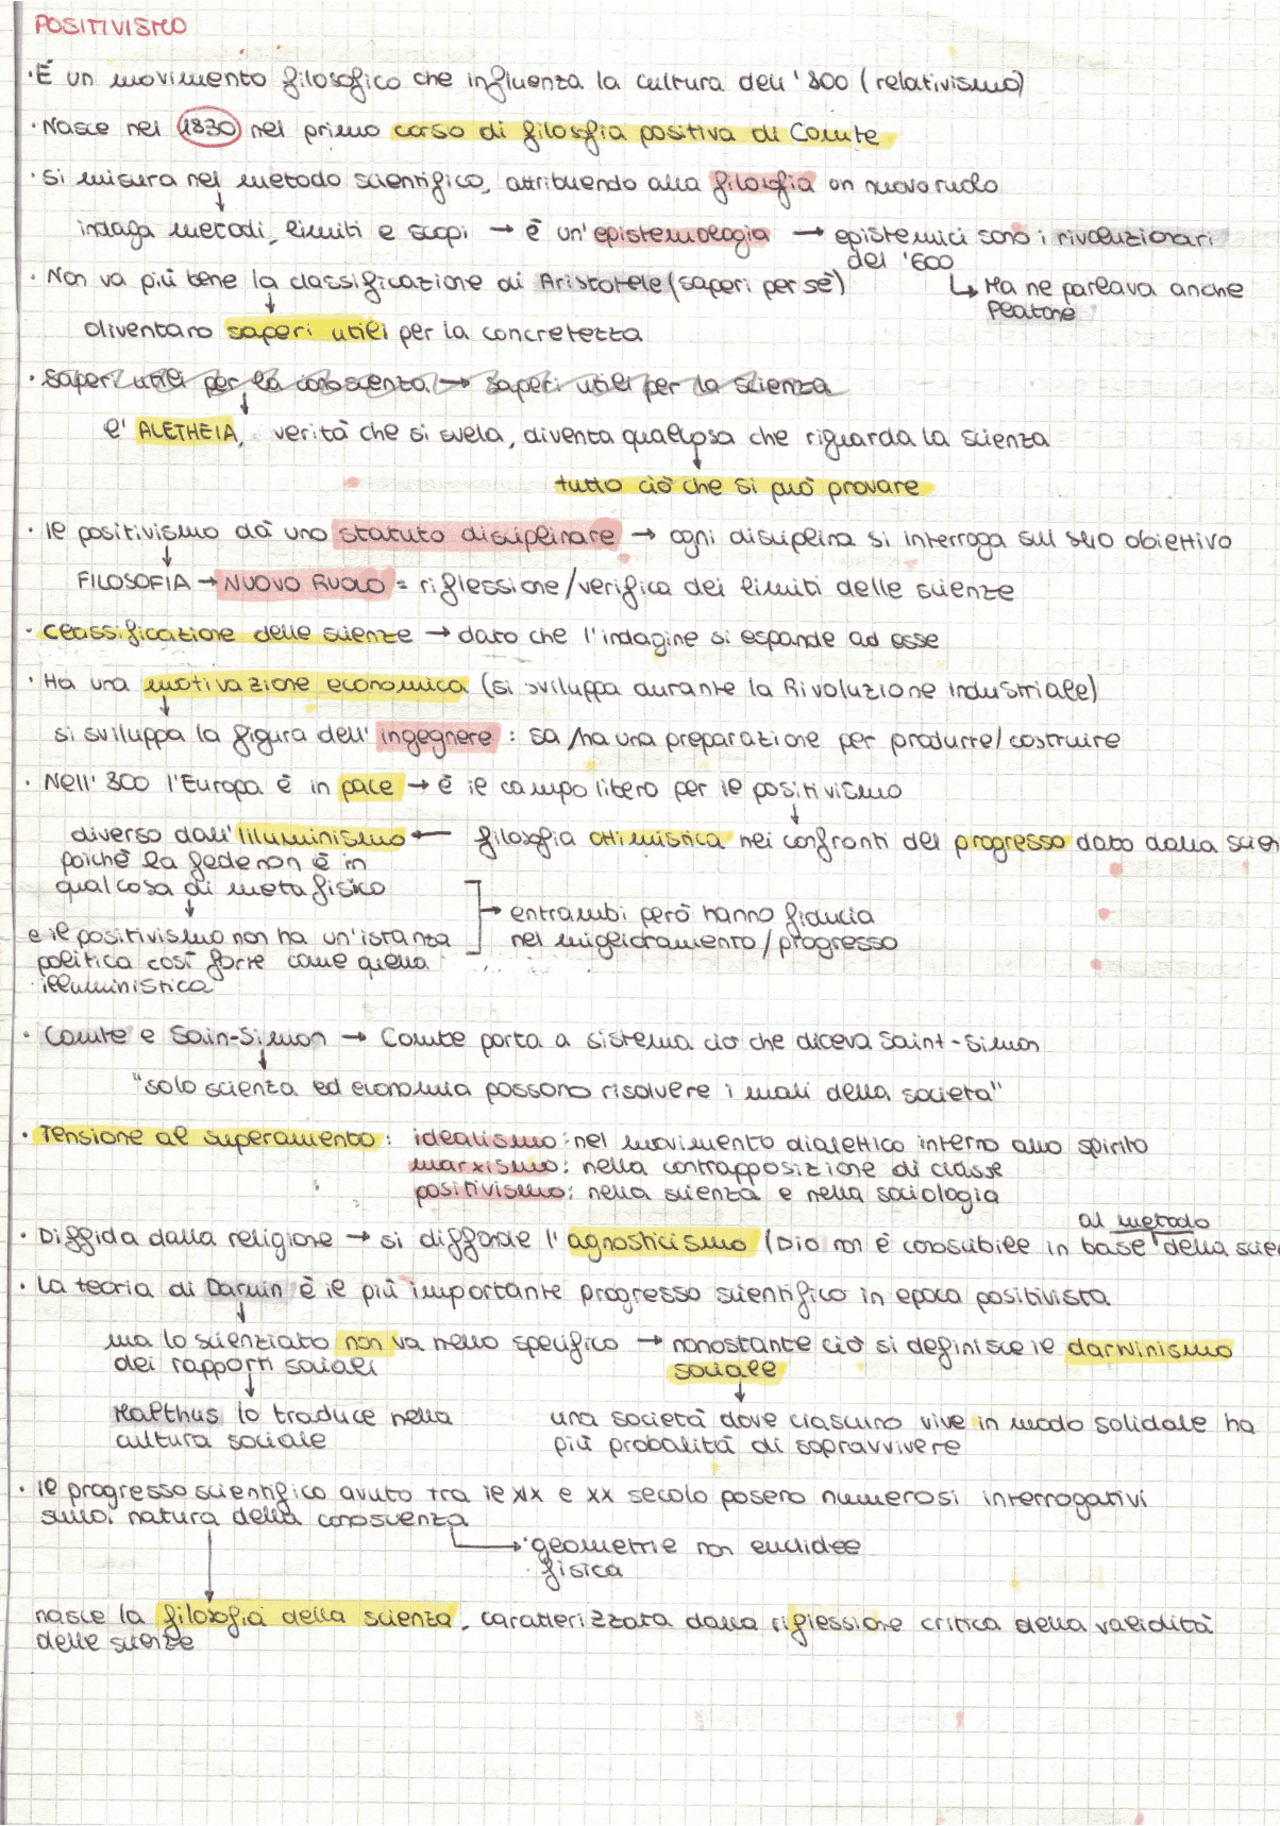 POSITIVISMO
· È un movimento filosofico che influenza la cultura dell'800 (relativismo)
· Nasce nel 1830 nel primo corso di filosofia positiva di Comte
· Si misura nel metodo scientifico, attribuendo alla filosofia un nuovo ruolo
↓
indaga metodi, limiti e scopi → è un'epistemologia → epistemici sono i rivoluzionari
del '600
· Non va più bene la classificazione di Aristotele (saperi per sé)
↳ Ma ne parlava anche
Platone
↓
diventano saperi utili per la concretezza
· saperi utili per la conoscenza → saperi utili per la scienza
↓
e' ALETHEIA, verità che si svela, diventa qualcosa che riguarda la scienza
↓
tutto ciò che si può provare
· il positivismo dà uno statuto disciplinare → ogni disciplina si interroga sul suo obiettivo
↓
FILOSOFIA → NUOVO RUOLO = riflessione/verifica dei limiti delle scienze
· classificazione delle scienze → dato che l'indagine si espande ad esse
· Ha una motivazione economica (si sviluppa durante la Rivoluzione industriale)
↓
si sviluppa la figura dell'ingegnere : sa/ha una preparazione per produrre/costruire
· Nell'800 l'Europa è in pace → è il campo libero per il positivismo
↓
diverso dall'illuminismo ← filosofia ottimistica nei confronti del progresso dato dalla scien
poichè la fede non è in
qualcosa di metafisico
↓
→ entrambi però hanno fiducia
e il positivismo non ha un'istanza nel miglioramento/progresso
politica così forte come quella
illuministica
· Comte e Sain-Simon → Comte porta a sistema ciò che diceva Saint-Simon
↓
"solo scienza ed economia possono risolvere i mali della società"
· Tensione al superamento : idealismo : nel movimento dialettico interno allo spirito
marxismo : nella contrapposizione di classe
positivismo : nella scienza e nella sociologia
al metodo
· Diffida dalla religione → si diffonde l'agnosticismo (Dio non è conoscibile in base della scie
· La teoria di Darwin è il più importante progresso scientifico in epoca positivista
↓
ma lo scienziato non va nello specifico → nonostante ciò si definisce il darwinismo
dei rapporti sociali sociale
↓ ↓
Malthus lo traduce nella una società dove ciascuno vive in modo solidale ha
cultura sociale più probalità di sopravvivere
· il progresso scientifico avuto tra il XIX e XX secolo posero numerosi interrogativi
sulla natura della conoscenza
→ · geometrie non euclidee
· fisica
↓
nasce la filosofia della scienza, caratterizzata dalla riflessione critica della validità
delle scienze